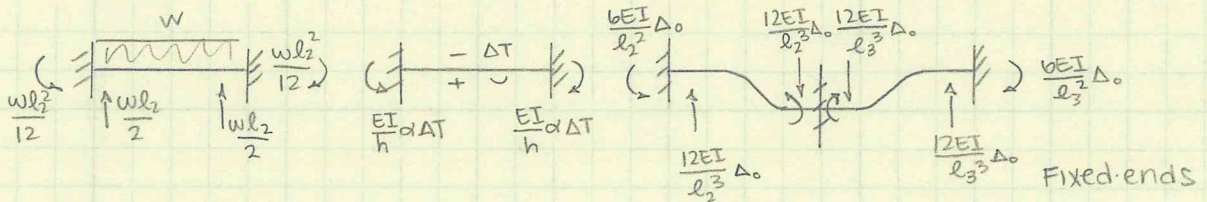 w
wl₂²/12
wl₂/2
wl₂/2
wl₂²/12
− ΔT
+ ⌣
EI/h αΔT
EI/h αΔT
6EI/l₂² Δ₀
12EI/l₂³ Δ₀
12EI/l₂³ Δ₀
12EI/l₃³ Δ₀
12EI/l₃³ Δ₀
6EI/l₃² Δ₀
Fixed-ends